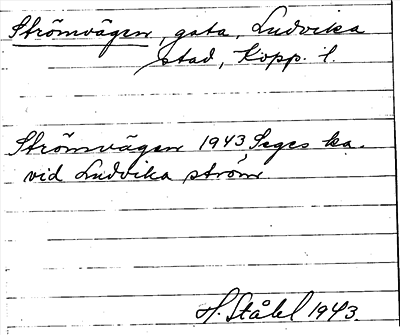 Strömvägen, gata, Ludvika
stad, Kopp. l.
Strömvägen 1943 Seges ka.
vid Ludvika ström
H. Ståhl 1943.